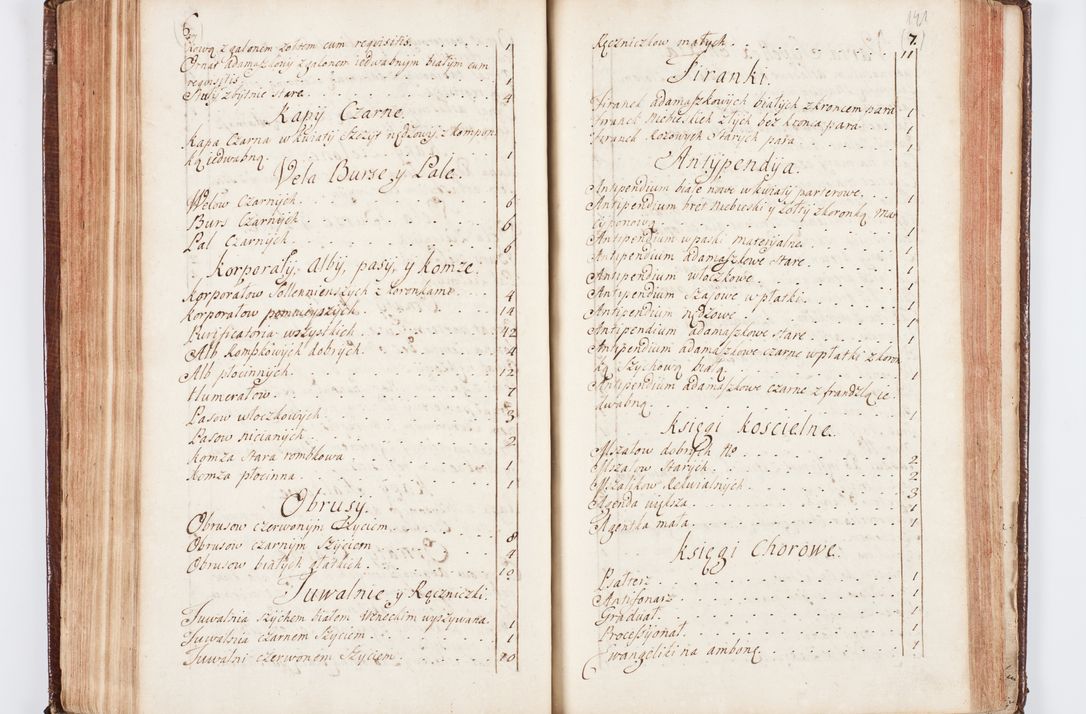 6
kową z galonem żołtem cum requisitis. 1
Ornat Adamaszkowy z galonem iedwabnym białym cum
requisitis. 1
Stuły zbytnie stare. 4
Kapy Czarne.
Kapa Czarna w kwiaty Szczyr nędzowy z kompan
ką iedwabną. 1
Vela Burse y Pale.
Welow Czarnych. 6
Burs Czarnych. 6
Pal Czarnych. 6
Korporały, Alby, pasy, y Komże.
Korporałow Sollennieyszych z koronkami. 4
Korporałow pomnieyszych. 14
Purificatoria wszystkich 42
Alb Rombkowych dobrych. 4
Alb płocinnych. 12
Humerałow. 7
Pasow włoczkowych. 3
Pasow nicianych. 2
Komża stara rombkowa. 1
Komża płocinna. 1
Obrusy.
Obrusow czerwonym Szyciem. 8
Obrusow czarnym Szyciem 4
Obrusow białych gładkich. 10
Tuwalnie y Ręczniczki.
Tuwalnia szychem białem Weneckim wyszywana. 1
Tuwalnia czarnem Szyciem. 1
Tuwalni czerwonem Szyciem. 10
191
7.
Ręczniczkow małych. 11
Firanki.
Firanek adamaszkowych białych z kroncem para 1
Firanek Niebieskich złych bez kronca para. 1
Firanek Rożowych Starych para 1
Antypendya.
Antipendium białe nowe w kwiaty parterowe. 1
Antipendium bret Niebieski y żołty z koronką mar
cyponową. 1
Antipendium w paski materyalne. 1
Antipendium adamaszkowe stare. 1
Antipendium włoczkowe. 1
Antipendium Szafowe w płatki. 1
Antipendium nędzowe 1
Antipendium adamaszkowe stare. 1
Antipendium adamaszkowe czarne w płatki z koron
ką Szychową białą. 1
Antipendium adamaszkowe czarne z frandzlą ie
dwabną. 1
Księgi koscielne.
Mszałow dobrych No 2
Mszałow Starych. 2
Mszalikow Rekwialnych. 3
Agenda większa. 1
Agentka mała. 1
Księgi Chorowe.
Psałterz. 1
Antifonarz. 1
Graduał. 1
Processyonał. 1
Ewangeliki na ambonę. 1